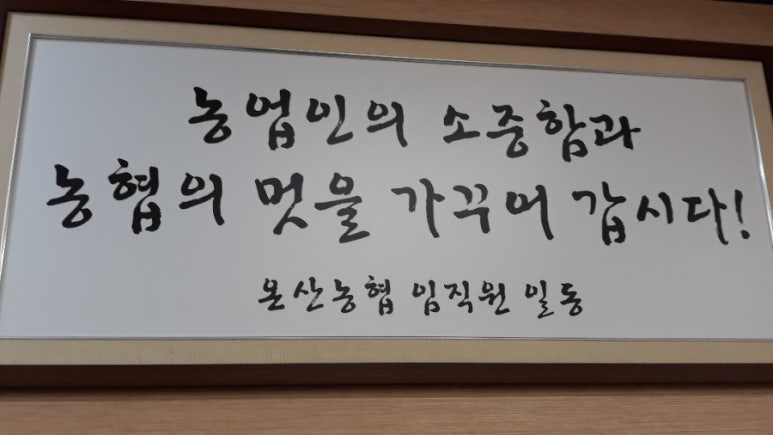 농업인의 소중함과
농협의 멋을 가꾸어 갑시다!
온산농협 임직원 일동